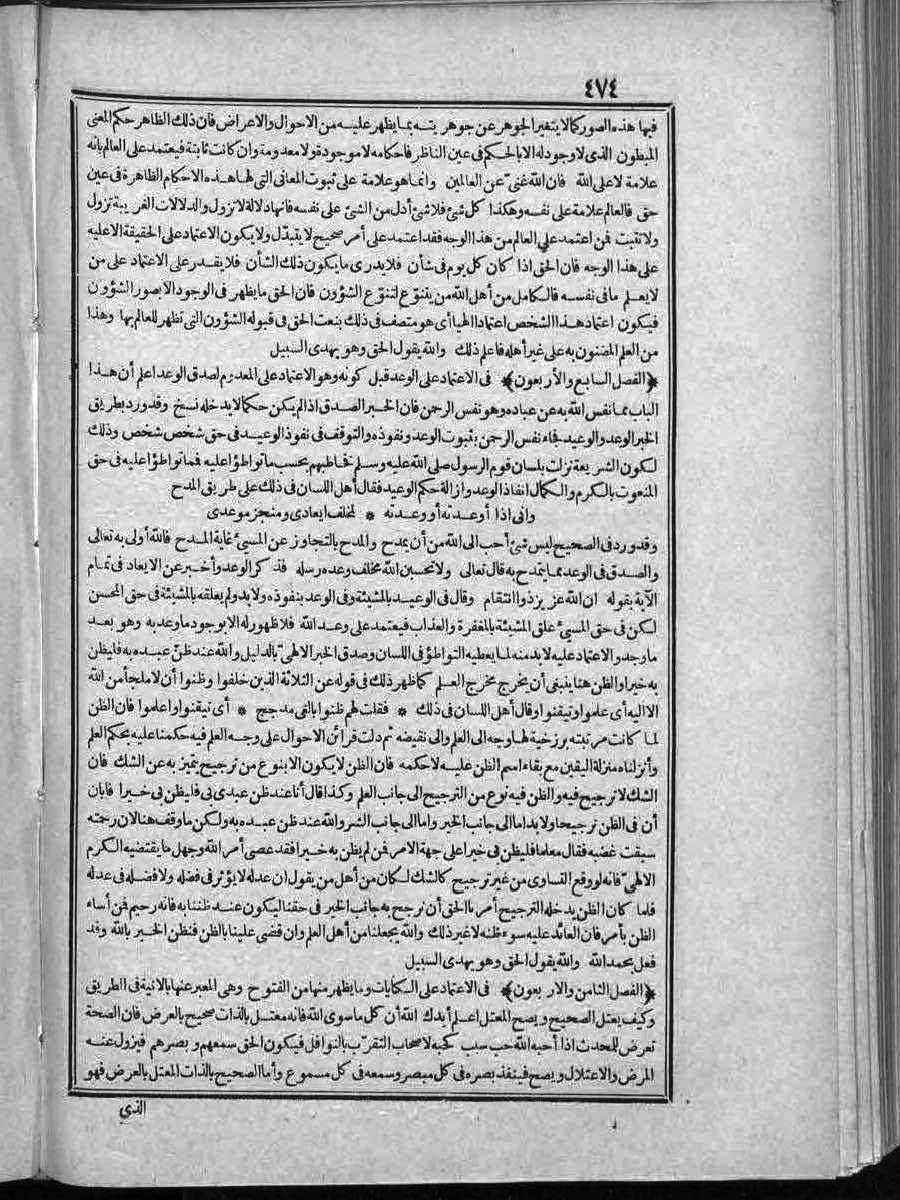 ٤٧٤
فيها هذه الصور كما لا يتغير الجوهر عن جوهريته بما يظهر عليه من الاحوال والاعراض فان ذلك الظاهر حكم المعنى
المبطون الذى لا وجود له الا بالحكم فى عين الناظر فاحكامه لا موجودة ولا معدومة وان كانت ثابتة فيعتمد على العالم بانه
علامة لا على الله فان الله غنىّ عن العالمين وانما هو علامة على ثبوت المعانى التى لها هذه الاحكام الظاهرة فى عين
حق فالعالم علامة على نفسه وهكذا كل شئ فلا شئ أدل من الشئ على نفسه فانها دلالة لا تزول والدلالات الغريبة تزول
ولا تثبت فمن اعتمد على العالم من هذا الوجه فقد اعتمد على أمر صحيح لا يتبدّل ولا يكون الاعتماد على الحقيقة الا عليه
على هذا الوجه فان الحق اذا كان كل يوم فى شأن فلا يدرى ما يكون ذلك الشأن فلا يقدر على الاعتماد على من
لا يعلم ما فى نفسه فالكامل من أهل الله من يتنوّع لتنوّع الشؤون فان الحق ما يظهر فى الوجود الا بصور الشؤون
فيكون اعتماد هذا الشخص اعتمادا الهيا أى هو متصف فى ذلك بنعت الحق فى قبوله الشؤون التى تظهر للعالم بها وهذا
من العلم المضنون به على غير أهله فاعلم ذلك والله يقول الحق وهو يهدى السبيل
﴿الفصل السابع والأربعون﴾ فى الاعتماد على الوعد قبل كونه وهو الاعتماد على المعدوم لصدق الوعد اعلم أن هذا
الباب مما نفس الله به عن عباده وهو نفس الرحمن فان الخبر الصدق اذا لم يكن حكما لا يدخله نسخ وقد ورد بطريق
الخبر الوعد والوعيد فجاء نفس الرحمن بثبوت الوعد ونفوذه والتوقف فى نفوذ الوعيد فى حق شخص شخص وذلك
لكون الشريعة نزلت بلسان قوم الرسول صلى الله عليه وسلم فخاطبهم بحسب ما تواطؤا عليه فمما تواطؤا عليه فى حق
المنعوت بالكرم والكمال انفاذ الوعد وازالة حكم الوعيد فقال أهل اللسان فى ذلك على طريق المدح
وانى اذا أوعدته أو وعدته * لمخلف ايعادى ومنجز موعدى
وقد ورد فى الصحيح ليس شئ أحب الى الله من أن يمدح والمدح بالتجاوز عن المسئ غاية المدح فالله أولى به تعالى
والصدق فى الوعد مما يتمدح به قال تعالى ولا تحسبن الله مخلف وعده رسله فذكر الوعد وأخبر عن الايعاد فى تمام
الآية بقوله ان الله عزيز ذو انتقام وقال فى الوعيد بالمشيئة وفى الوعد بنفوذه ولا بد ولم يعلقه بالمشيئة فى حق المحسن
لكن فى حق المسئ علق المشيئة بالمغفرة والعذاب فيعتمد على وعد الله فلا ظهور له الا بوجود ما وعد به وهو بعد
ما وجد والاعتماد عليه لا بد منه لما يعطيه التواطؤ فى اللسان وصدق الخبر الالهىّ بالدليل والله عند ظنّ عبده به فليظن
به خيرا والظن هنا ينبغى أن يخرج مخرج العلم كما ظهر ذلك فى قوله عن الثلاثة الذين خلفوا وظنوا أن لا ملجأ من الله
الا اليه أى علموا وتيقنوا وقال أهل اللسان فى ذلك * فقلت لهم ظنوا بالفى مدجج * أى تيقنوا واعلموا فان الظن
لما كانت مرتبته برزخية لها وجه الى العلم والى نقيضه ثم دلت قرائن الاحوال على وجه العلم فيه حكمنا عليه بحكم العلم
وأنزلناه منزلة اليقين مع بقاء اسم الظن عليه لا حكمه فان الظن لا يكون الا بنوع من ترجيح يتميز به عن الشك فان
الشك لا ترجيح فيه والظن فيه نوع من الترجيح الى جانب العلم وكذا قال أنا عند ظن عبدى بى فليظن بى خيرا فابان
أن فى الظن ترجيحا ولا بد اما الى جانب الخير واما الى جانب الشر والله عند ظن عبده به ولكن ما وقف هنا لان رحمته
سبقت غضبه فقال معلما فليظن بى خيرا على جهة الامر فمن لم يظن به خيرا فقد عصى أمر الله وجهل ما يقتضيه الكرم
الالهىّ فانه لو وقع التساوى من غير ترجيح كالشك لكان من أهل من يقول ان عدله لا يؤثر فى فضله ولا فضله فى عدله
فلما كان الظن يدخله الترجيح أمرنا الحق أن نرجح به جانب الخير فى حقنا ليكون عند ظننا به فانه رحيم فمن أساء
الظن بأمر فان العائد عليه سوء ظنه لا غير ذلك والله يجعلنا من أهل العلم وان قضى علينا بالظن فنظن الخير بالله وقد
فعل بحمد الله والله يقول الحق وهو يهدى السبيل
﴿الفصل الثامن والاربعون﴾ فى الاعتماد على الكنايات وما يظهر منها من الفتوح وهى المعبر عنها بالانية فى الطريق
وكيف يعتل الصحيح ويصح المعتل اعلم أيدك الله أن كل ما سوى الله فانه معتل بالذات صحيح بالعرض فان الصحة
تعرض للمحدث اذا أحبه الله حب سبب كحبه لاصحاب التقرّب بالنوافل فيكون الحق سمعهم وبصرهم فيزول عنه
المرض والاعتلال ويصح فينفذ بصره فى كل مبصر وسمعه فى كل مسموع وأما الصحيح بالذات المعتل بالعرض فهو
الذى